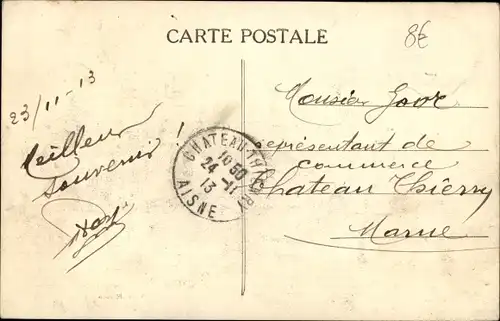 CARTE POSTALE
8€
23/11-13
Meilleur
souvenir !
CHATEAU-THIERRY
10 30
24 - 11
13
AISNE
Monsieur
représentant de
commerce
Chateau Thierry
Marne